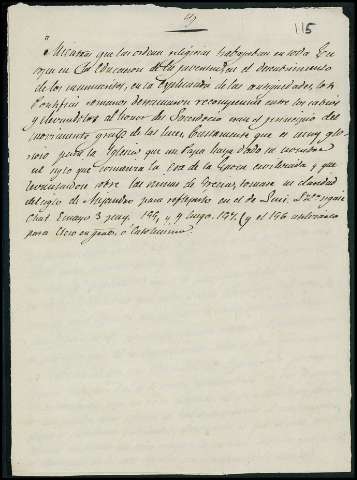 115
"Mientras que las ordenes religiosas trabajaban en toda Eu-
ropa en la educacion de la juventud, en el descubrimiento
de los monumentos, en la explicacion de las antiguedades, los
Pontifices romanos derramaron recompensas entre los sabios
y elevandolos al honor del Sacerdocio eran el principio del
movimiento gral. de las luces. Ciertamente que es muy glo-
rioso para la Iglesia que un Papa haya dado su nombre
al siglo que comienza la Era de la Epoca civilizada y que
levantados sobre las ruinas de Grecia, tomase su claridad
del siglo de Alejandro para reflejarlo en el de Luis
Chat. Ensayo 3 pag. 196, y 197. (y el 196
para Clero en gral. o Catolicismo.